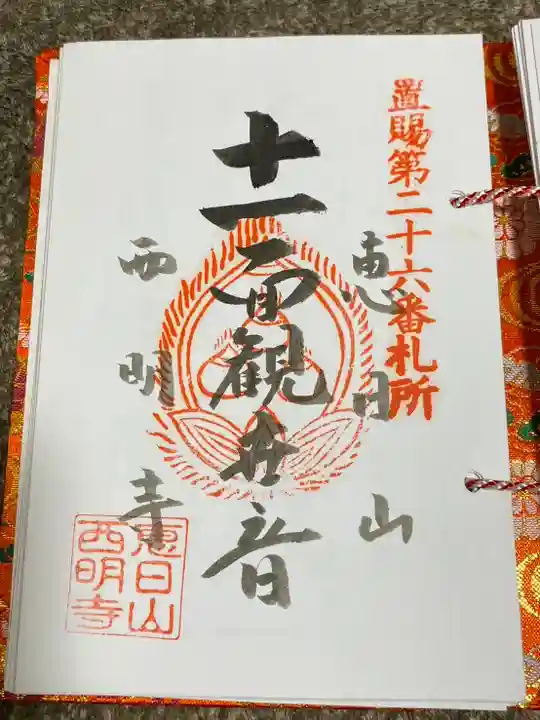 置賜第二十六番札所
恵日山
十一面観世音
西明寺
恵日山
西明寺